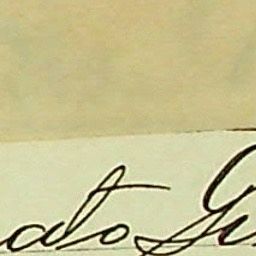 ato Gi